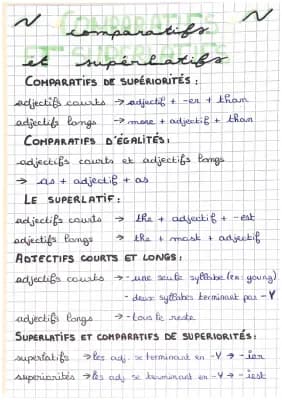 comparatifs
et superlatifs
COMPARATIFS DE SUPÉRIORITÉS :
adjectifs courts → adjectif + -er + than
adjectifs longs → more + adjectif + than
COMPARATIFS D'ÉGALITÉS :
adjectifs courts et adjectifs longs
→ as + adjectif + as
LE SUPERLATIF :
adjectifs courts → the + adjectif + -est
adjectifs longs → the + most + adjectif
ADJECTIFS COURTS ET LONGS :
adjectifs courts → - une seule syllabe (ex : young)
- deux syllabes terminant par -Y
adjectifs longs → - tous le reste
SUPERLATIFS ET COMPARATIFS DE SUPERIORITÉS :
superlatifs → les adj. se terminant en -Y → -ier
superiorités → les adj se terminant en -Y → -iest